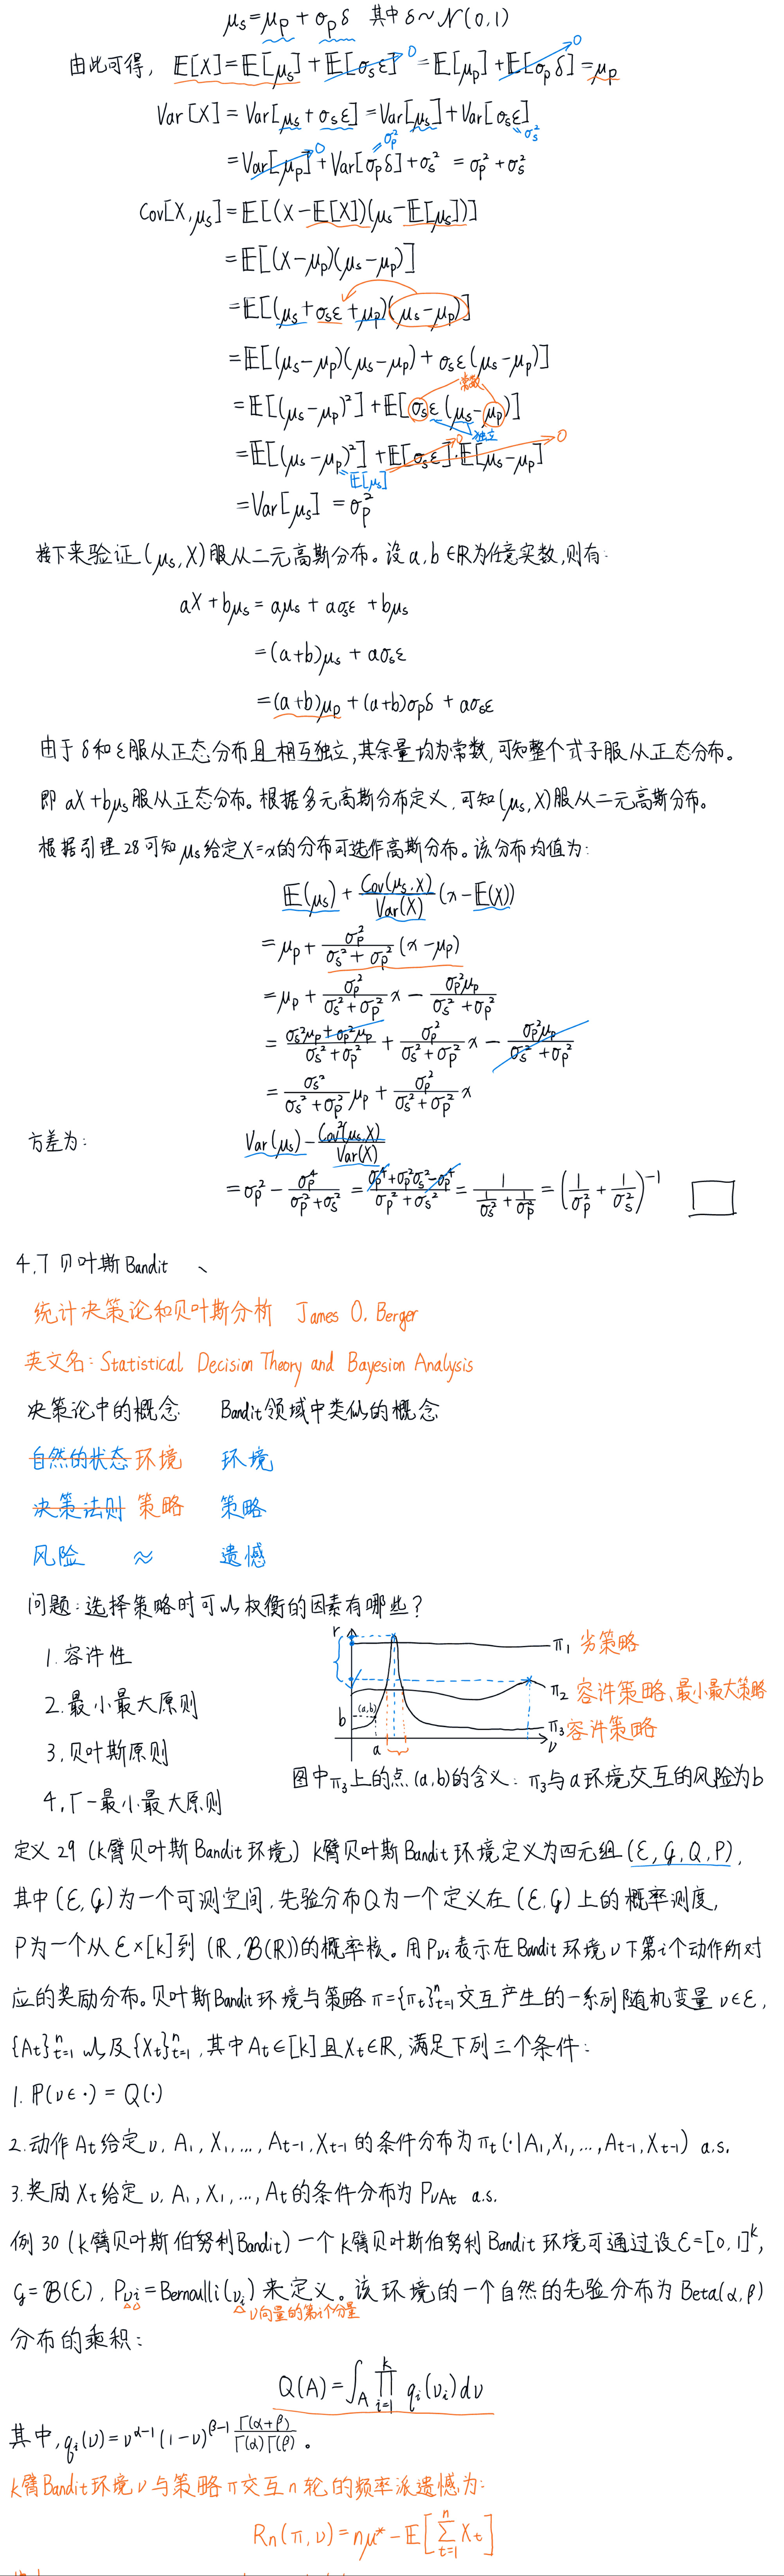 μs=μp+σpδ 其中δ~N(0,1)
由此可得, E[X]=E[μs]+E[σsε]→0=E[μp]+E[σpδ]→0=μp
Var[X]=Var[μs+σsε]=Var[μs]+Var[σsε] =σs²
=Var[μp]→0+Var[σpδ]+σs²=σp²+σs² =σp²
Cov[X,μs]=E[(X-E[X])(μs-E[μs])]
=E[(X-μp)(μs-μp)]
=E[(μs+σsε+μp)(μs-μp)]
=E[(μs-μp)(μs-μp)+σsε(μs-μp)]
常数
=E[(μs-μp)²]+E[σsε(μs-μp)]
独立
=E[(μs-μp)²]+E[σsε]→0·E[μs-μp]→0
=E[μs]
=Var[μs]=σp²
接下来验证(μs,X)服从二元高斯分布。设a,b∈R为任意实数,则有:
aX+bμs=aμs+aσsε+bμs
=(a+b)μs+aσsε
=(a+b)μp+(a+b)σpδ+aσsε
由于δ和ε服从正态分布且相互独立,其余量均为常数,可知整个式子服从正态分布。
即aX+bμs服从正态分布。根据多元高斯分布定义,可知(μs,X)服从二元高斯分布。
根据引理28可知μs给定X=x的分布可选作高斯分布。该分布均值为:
E(μs)+Cov(μs,X)/Var(X)(x-E(X))
=μp+σp²/(σs²+σp²)(x-μp)
=μp+σp²/(σs²+σp²)x-σp²μp/(σs²+σp²)
=(σs²μp+σp²μp)/(σs²+σp²)+σp²/(σs²+σp²)x-σp²μp/(σs²+σp²)
=σs²/(σs²+σp²)μp+σp²/(σs²+σp²)x
方差为: Var(μs)-Cov²(μs,X)/Var(X)
=σp²-σp⁴/(σp²+σs²)=(σp⁴+σp²σs²-σp⁴)/(σp²+σs²)=1/(1/σs²+1/σp²)=(1/σp²+1/σs²)⁻¹ □
4.7 贝叶斯Bandit 、
统计决策论和贝叶斯分析 James O. Berger
英文名:Statistical Decision Theory and Bayesion Analysis
决策论中的概念 Bandit领域中类似的概念
自然的状态 环境 环境
决策法则 策略 策略
风险 ≈ 遗憾
问题:选择策略时可以权衡的因素有哪些?
1.容许性
2.最小最大原则
3.贝叶斯原则
4.Γ-最小最大原则
r
π1 劣策略
π2 容许策略、最小最大策略
(a,b)
b
π3 容许策略
a
ν
图中π3上的点(a,b)的含义:π3与a环境交互的风险为b
定义29 (k臂贝叶斯Bandit环境) k臂贝叶斯Bandit环境定义为四元组(Ɛ,G,Q,P),
其中(Ɛ,G)为一个可测空间,先验分布Q为一个定义在(Ɛ,G)上的概率测度,
P为一个从Ɛ×[k]到(R,B(R))的概率核。用Pνi表示在Bandit环境ν下第i个动作所对
应的奖励分布。贝叶斯Bandit环境与策略π={πt}ⁿt=1交互产生的一系列随机变量ν∈Ɛ,
{At}ⁿt=1以及{Xt}ⁿt=1,其中At∈[k]且Xt∈R,满足下列三个条件:
1.P(ν∈·)=Q(·)
2.动作At给定ν,A1,X1,...,At-1,Xt-1的条件分布为πt(·|A1,X1,...,At-1,Xt-1) a.s.
3.奖励Xt给定ν,A1,X1,...,At的条件分布为PνAt a.s.
例30 (k臂贝叶斯伯努利Bandit)一个k臂贝叶斯伯努利Bandit环境可通过设Ɛ=[0,1]ᵏ,
G=B(Ɛ),Pνi=Bernoulli(νi)来定义。该环境的一个自然的先验分布为Beta(α,β)
ν向量的第i个分量
分布的乘积:
Q(A)=∫A ∏ᵏi=1 qi(νi)dν
其中,qi(ν)=ν^(α-1)(1-ν)^(β-1) Γ(α+β)/(Γ(α)Γ(β))。
k臂Bandit环境ν与策略π交互n轮的频率派遗憾为:
Rn(π,ν)=nμ*-E[∑ⁿt=1 Xt]